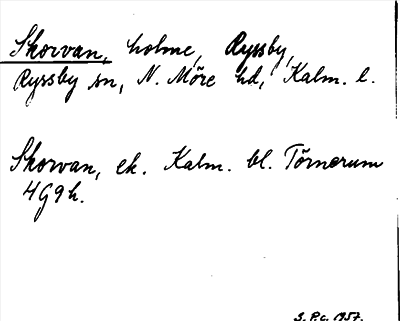 Skorvan, holme, Ryssby,
Ryssby sn, N. Möre hd, Kalm. l.
Skorvan, ek. Kalm. bl. Törnerum
4G9h.
S. P.c. 1957.